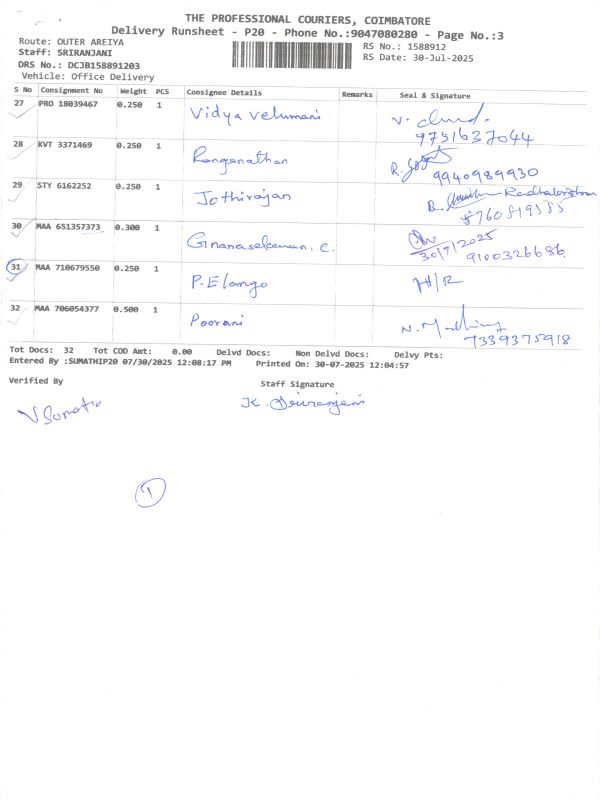 THE PROFESSIONAL COURIERS, COIMBATORE
Delivery Runsheet - P20 - Phone No.:9047080280 - Page No.:3
Route: OUTER AREIYA
Staff: SRIRANJANI
DRS No.: DCJB158891203
Vehicle: Office Delivery
RS No.: 1588912
RS Date: 30-Jul-2025
S No Consignment No Weight PCS Consignee Details Remarks Seal & Signature
27 PRO 18039467 0.250 1 Vidya Velumani
9751637044
28 KVT 3371469 0.250 1 Ranganathan
9940989930
29 STY 6162252 0.250 1 Jothirajan Radhakrishnan
30 MAA 651357373 0.300 1 Gnanasekaran. C.
30/7/2025 9100326686
31 MAA 710679550 0.250 1 P. Elango H/R
32 MAA 706054377 0.500 1 Poorani
7339375918
Tot Docs: 32 Tot COD Amt: 0.00 Delvd Docs: Non Delvd Docs: Delvy Pts:
Entered By :SUMATHIP20 07/30/2025 12:08:17 PM Printed On: 30-07-2025 12:04:57
Verified By Staff Signature
V Sumathi K. Sriranjani
1